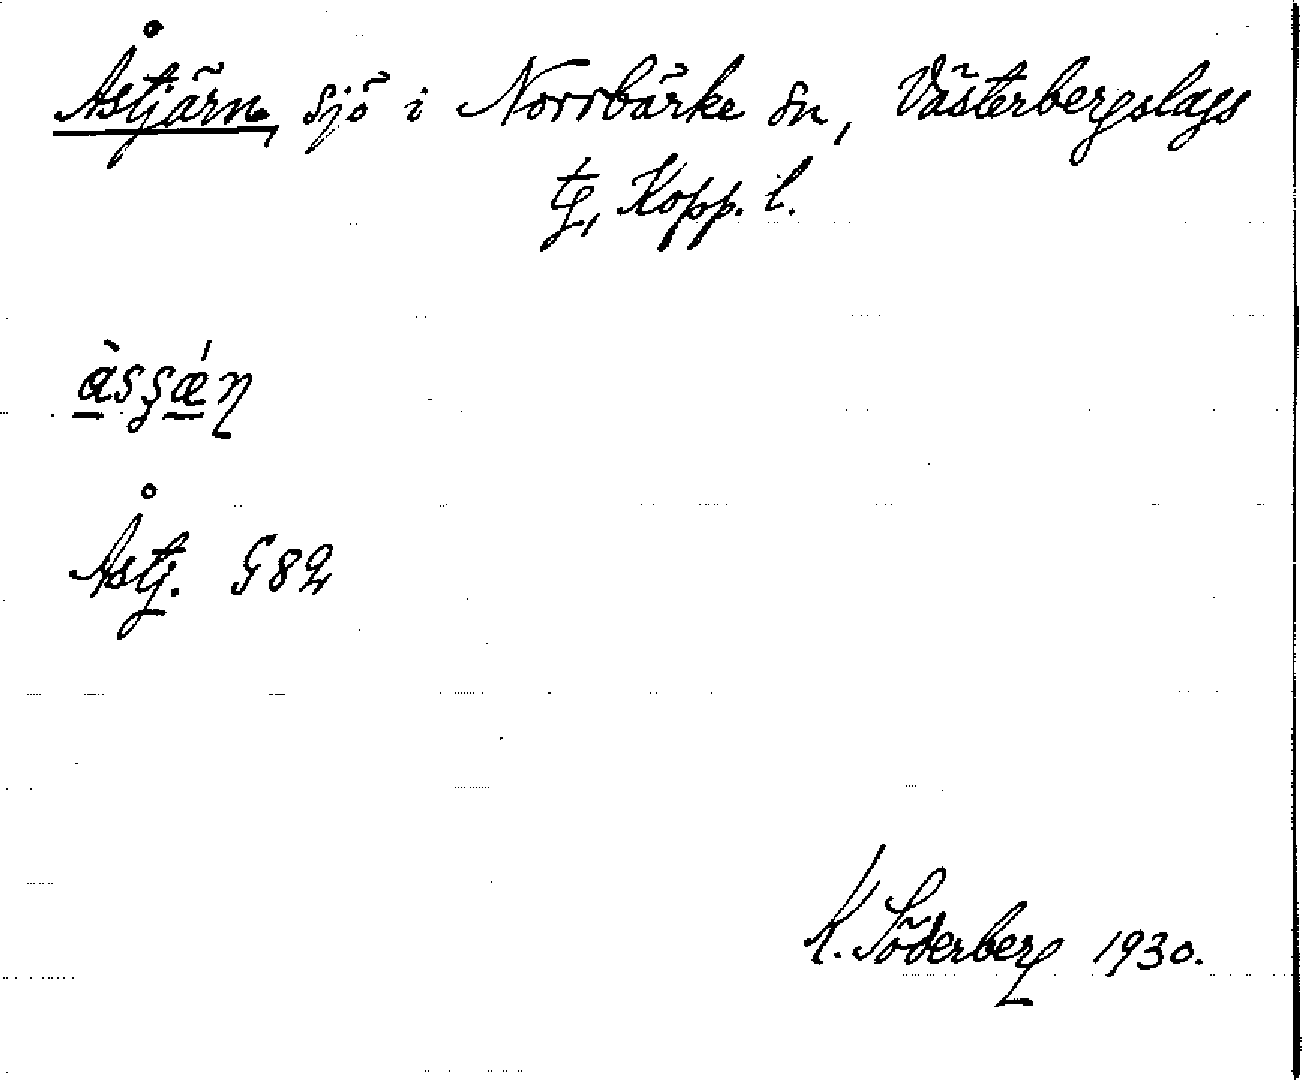 Åstjärn, sjö i Norrbärke sn, Västerbergslags
tg, Kopp. l.
Åstj. G82
K. Söderberg 1930.